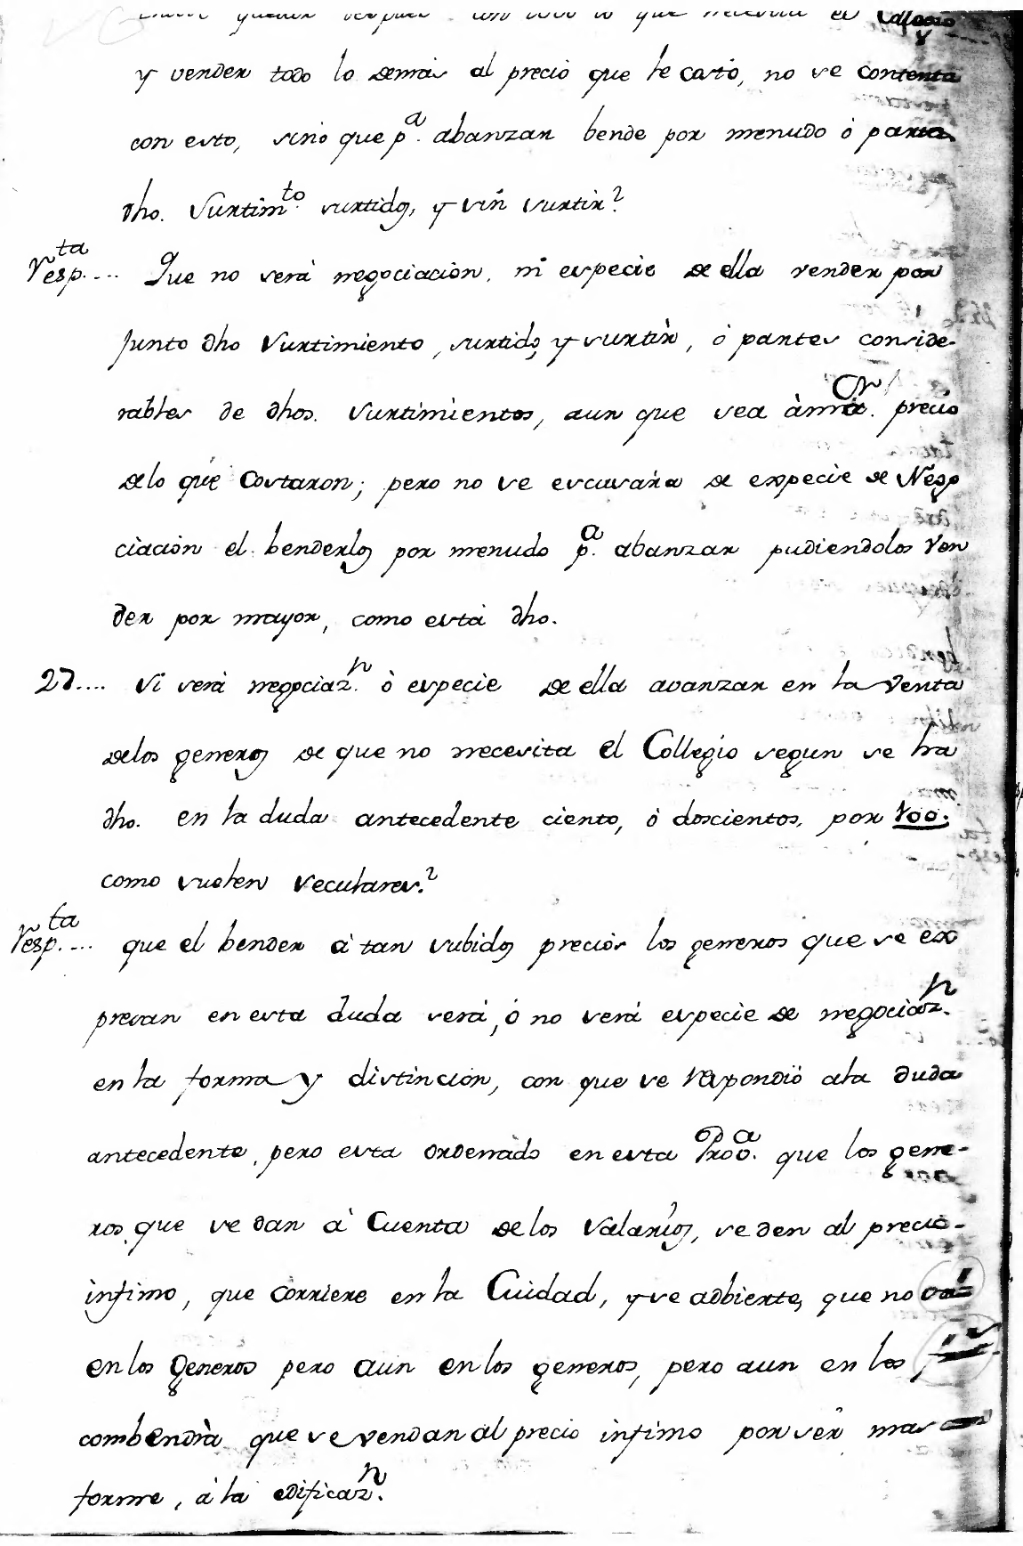 quedar despues con todo lo que necesita el Collegio
y vender todo lo demas al precio que le costó, no se contenta
con esto, sino que p.ª abanzar bende por menudo ó partes
dho. Surtim.to surtidos, y sin surtir?
Resp.ta .... Que no será negociacion, ni especie de ella vender por
Junto dho Surtimiento, surtido, y surtir, ó partes conside-
rables de dhos. surtimientos, aun que sea à mór. precio
delo que Costaron; pero no se escusara de especie de Nego
ciacion el benderlos por menudo p.ª abanzar pudiendolos Ven
der por mayor, como está dho.
27.... Si será negociaz.n ò especie de ella avanzar en la Venta
delos generos de que no necesita el Collegio segun se ha
dho. en la duda antecedente ciento, ó doscientos, por 100;
como suelen Seculares.?
Resp.ta .... que el bender à tan subidos precios los generos que se ex
presan en esta duda será, ó no será especie de negociaz.n
en la forma y distincion, con que se respondió ala duda
antecedente, pero esta ordenado en esta Pro.ª que los gene-
ros, que se dan à Cuenta delos Salarios, se den al precio
infimo, que corriere en la Cuidad, y se adbierte, que no
en los Generos pero aun en los generos, pero aun en los
combendrà que se vendan al precio infimo por ser mas
forme, à la edificaz.n